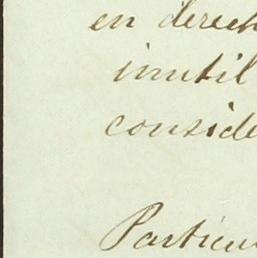 en derech
inutil
conside
Particu